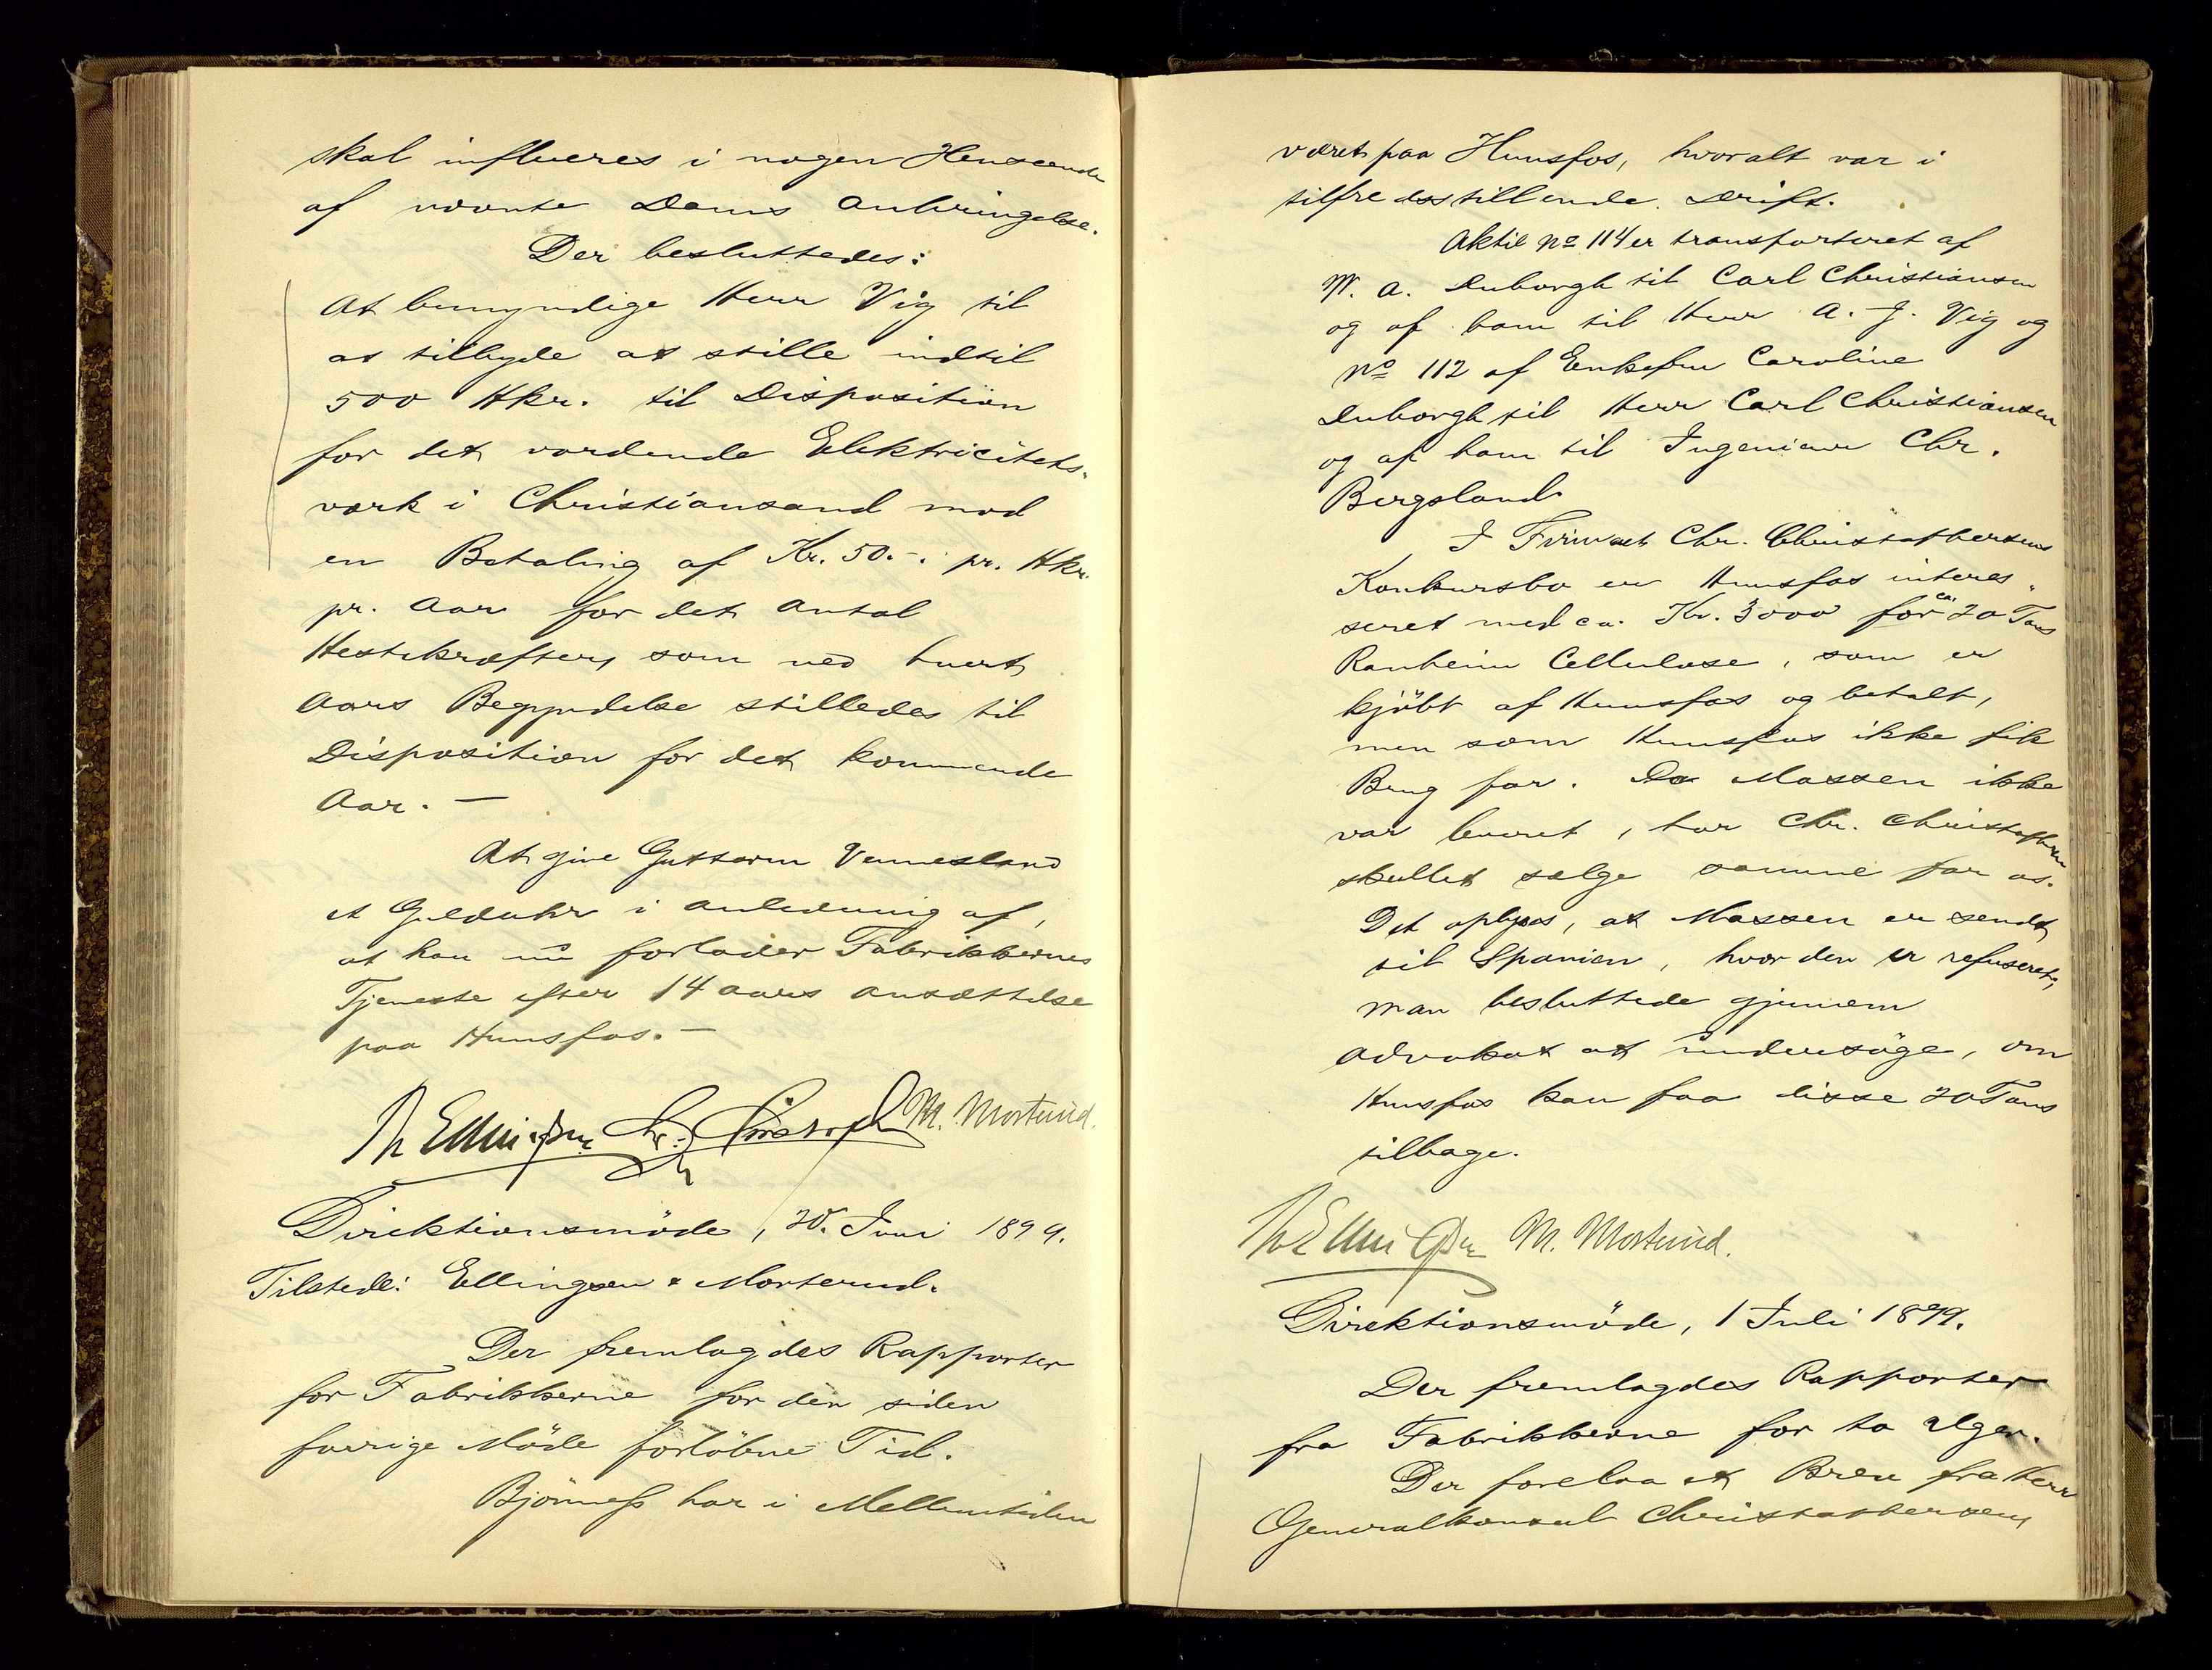 skal influeres i nogen Henseende
af nævnte Dams Anbringelse.
Der besluttedes:
At bemyndige Herr Vig til
at tilbyde at stille indtil
500 Hkr. til Disposition
for det vordende Elektricitets-
værk i Christiansand mod
en Betaling af Kr. 50.-. pr. Hkr.
pr. Aar for det Antal
Hestekræfter, som ved hvert
Aars Begyndelse stilledes til
Disposition for det kommende
Aar. —
At give Guttorm Vennesland
et Gulduhr i Anledning af,
at han nu forlader Fabrikkernes
Tjeneste efter 14 Aars Ansættelse
paa Hunsfos. —
Th Ellingsen Chr. Christophersen M. Mortend.
Direktionsmöde, 20. Juni 1899.
Tilstede: Ellingsen & Morterud.
Der fremlagdes Rapporter
for Fabrikkerne for den siden
forrige Möde forløbne Tid.
Bjönness har i Mellemtiden
været paa Hunsfos, hvor alt var i
tilfredsstillende Drift.
Aktie No 114 er transporteret af
W. A. Duborgh til Carl Christiansen
og af ham til Herr A. J. Vig og
No 112 af Enkefru Caroline
Duborgh til Herr Carl Christiansen
og af ham til Ingeniør Chr.
Bergsland
I Firmaet Chr. Christophersens
Konkursbo er Hunsfos interes-
seret med ca. Kr. 3000 for ca. 20 Tons
Ranheim Cellulose, som er
kjöbt af Hunsfos og betalt,
men som Hunsfos ikke fik
Brug for. Da Massen ikke
var leveret, har Chr. Christophersen
skullet sælge samme for os.
Det oplyses, at Massen er sendt
til Spanien, hvor den er refuseret;
man besluttede gjennem
Advokat at undersöge, om
Hunsfos kan faa disse 20 Tons
tilbage.
Th Ellingsen M. Mortend.
Direktionsmöde, 1 Juli 1899.
Der fremlagdes Rapporter
fra Fabrikkerne for to Uger.
Der forelaa et Brev fra Herr
Generalkonsul Christophersen,